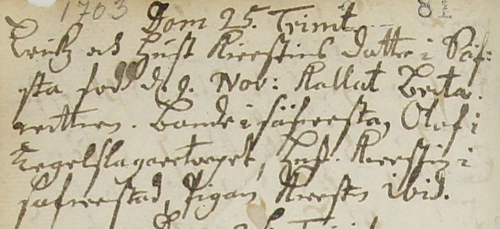 1703 Dom 25. Trinit. 81
Eritz ock Hust Kierstins datter i Säf:
sta född d. 9. Nov: Kallat Brita.
wittnen. Bonde i Säfversta, Olof i
Tegelslagaretorpet, Hust. Kierstin i
Säfverstad, Pigan Kierstin ibid.